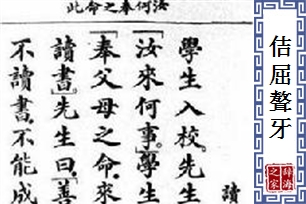 汝何奉之命此
讀
學生入校。先生
「汝來何事。」學生
「奉父母之命。來
讀書。」先生曰。「善
不讀書。不能成
佶屈聱牙
辞海
之家